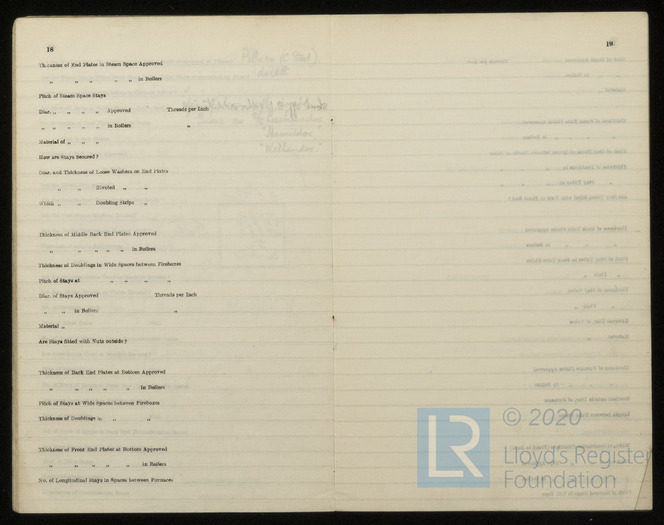 18
Thickness of End Plates in Steam Space Approved
„ „ „ „ „ in Boilers
Pitch of Steam Space Stays
Diar. „ „ „ „ Approved Threads per Inch
„ „ „ „ „ in Boilers „
Material of „ „ „
How are Stays Secured?
Diar. and Thickness of Loose Washers on End Plates
„ „ Riveted „ „
Width „ „ Doubling Strips „
Thickness of Middle Back End Plates Approved
„ „ „ „ „ in Boilers
Thickness of Doublings in Wide Spaces between Fireboxes
Pitch of Stays at „ „ „ „
Diar. of Stays Approved Threads per Inch
„ „ in Boilers „
Material „
Are Stays fitted with Nuts outside?
Thickness of Back End Plates at Bottom Approved
„ „ „ „ „ in Boilers
Pitch of Stays at Wide Spaces between Fireboxes
Thickness of Doublings in „ „
Thickness of Front End Plates at Bottom Approved
„ „ „ „ „ in Boilers
No. of Longitudinal Stays in Spaces between Furnaces
19
LR
© 2020
Lloyd's Register
Foundation